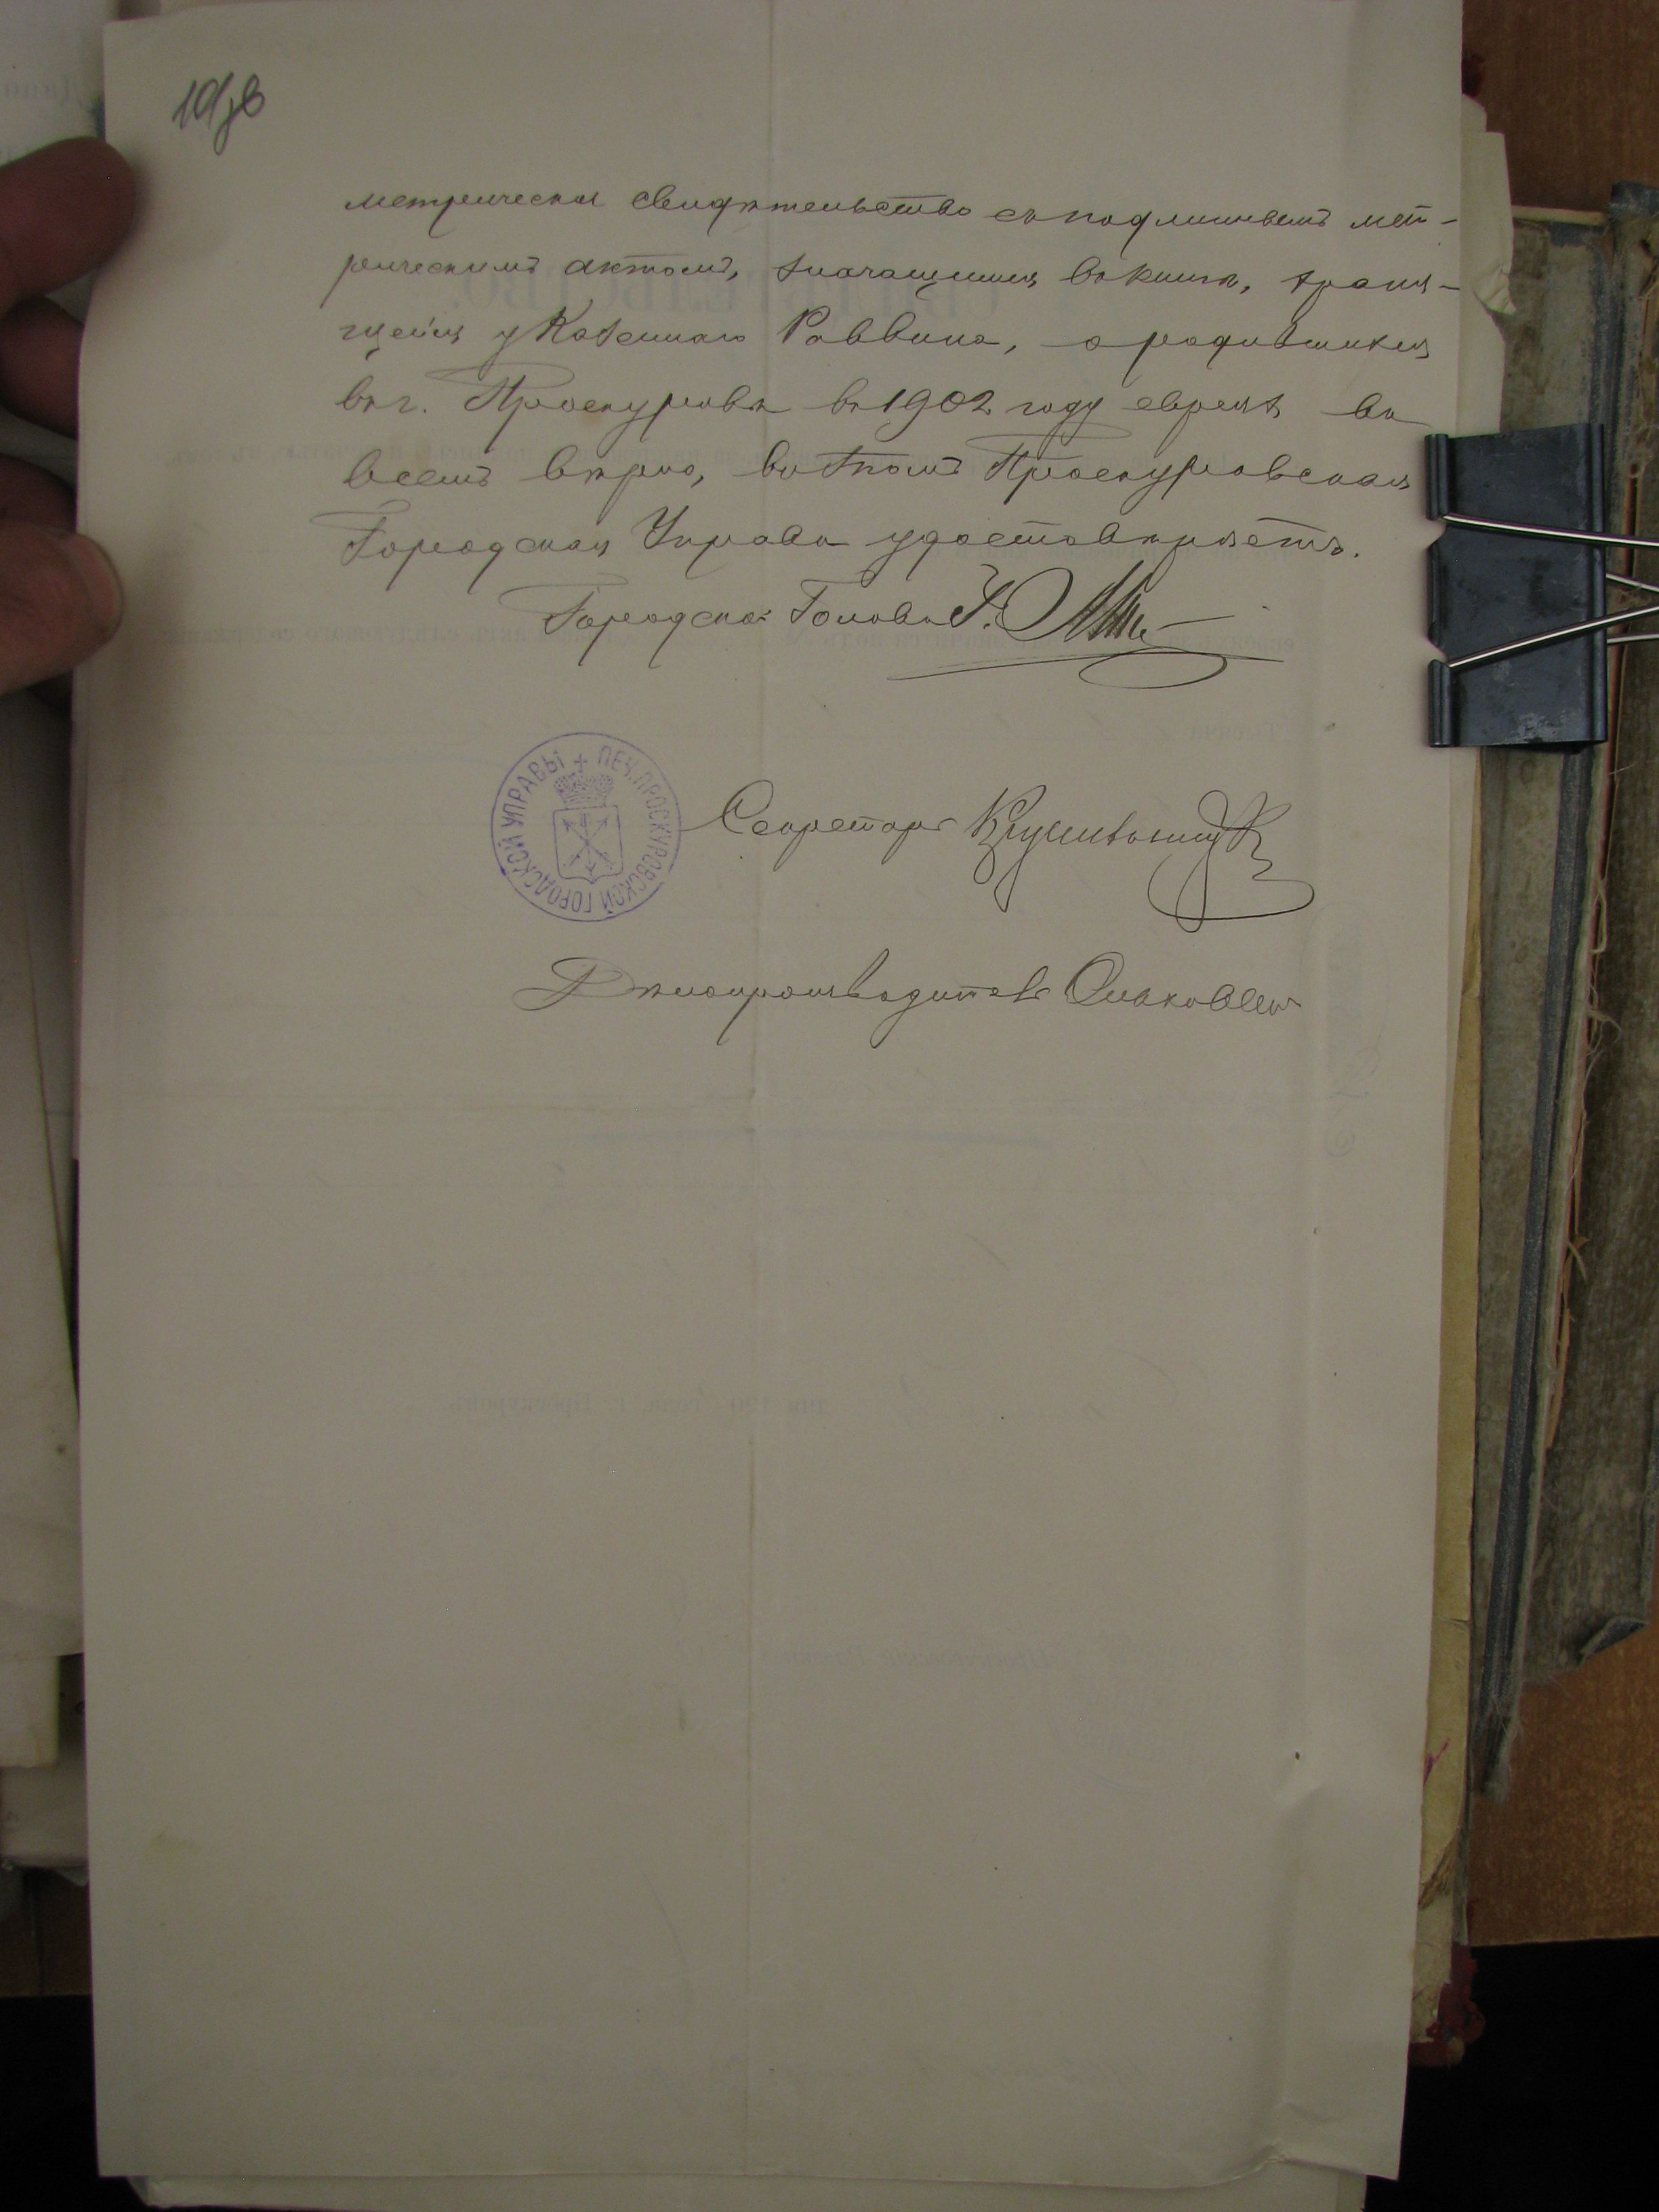 метрическая свидѣтельство съ подлиннымъ мет-
рическимъ актомъ, значащимся въ книгѣ, храня-
щейся у Казеннаго Раввина, о родившихся
въ г. Проскуровѣ въ 1902 году евреяхъ во
всемъ вѣрно, въ томъ Проскуровская
Городская Управа удостовѣряетъ.
Городской Голова
ПЕЧ. ПРОСКУРОВСКОЙ ГОРОДСКОЙ УПРАВЫ
Секретарь
Дѣлопроизводитель